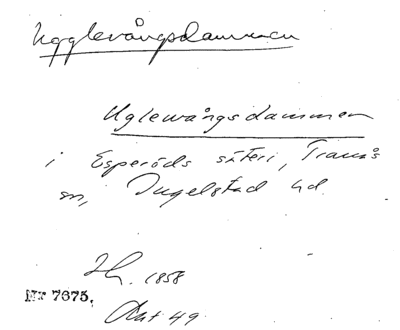 Ugglevångsdammen
Uglewångsdammen
i Esperöds säteri, Tranås
sn, Ingelstad hd.
1858
Nr 7675.
Akt 49